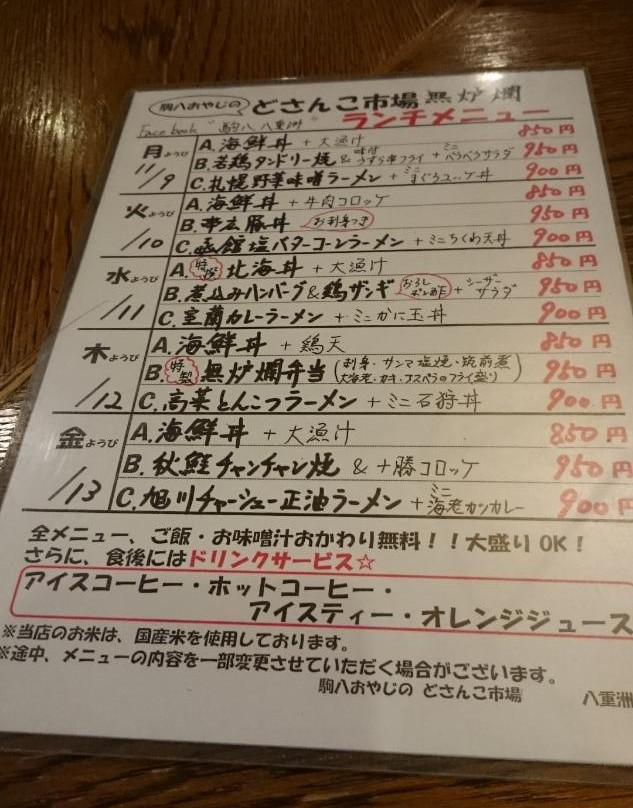 駒八おやじの どさんこ市場 無炉爛
Facebook "駒八 八重洲" ランチメニュー
月ようび A.海鮮丼 + 大漁汁 850円
11/9 B.若鶏タンドリー焼 & 味付うずら串フライ + ミニベラベラサラダ 950円
C.札幌野菜味噌ラーメン + ミニまぐろユッケ丼 900円
火ようび A.海鮮丼 + 牛肉コロッケ 850円
/10 B.帯広豚丼 お刺身つき 950円
C.函館塩バターコーンラーメン + ミニちくわ天丼 900円
水ようび A.特撰 北海丼 + 大漁汁 850円
/11 B.煮込みハンバーグ&鶏ザンギ おろしポン酢 + シーザーサラダ 950円
C.室蘭カレーラーメン + ミニかに玉丼 900円
木ようび A.海鮮丼 + 鶏天 850円
B.特製 無炉爛弁当 (刺身・サンマ塩焼・筑前煮 大海老・カキ・アスパラのフライ盛り) 950円
/12 C.高菜とんこつラーメン + ミニ石狩丼 900円
金ようび A.海鮮丼 + 大漁汁 850円
B.秋鮭チャンチャン焼 & 十勝コロッケ 950円
/13 C.旭川チャーシュー正油ラーメン + ミニ海老カツカレー 900円
全メニュー、ご飯・お味噌汁おかわり無料!!大盛りOK!
さらに、食後にはドリンクサービス☆
アイスコーヒー・ホットコーヒー・
アイスティー・オレンジジュース
※当店のお米は、国産米を使用しております。
※途中、メニューの内容を一部変更させていただく場合がございます。
駒八おやじの どさんこ市場 八重洲